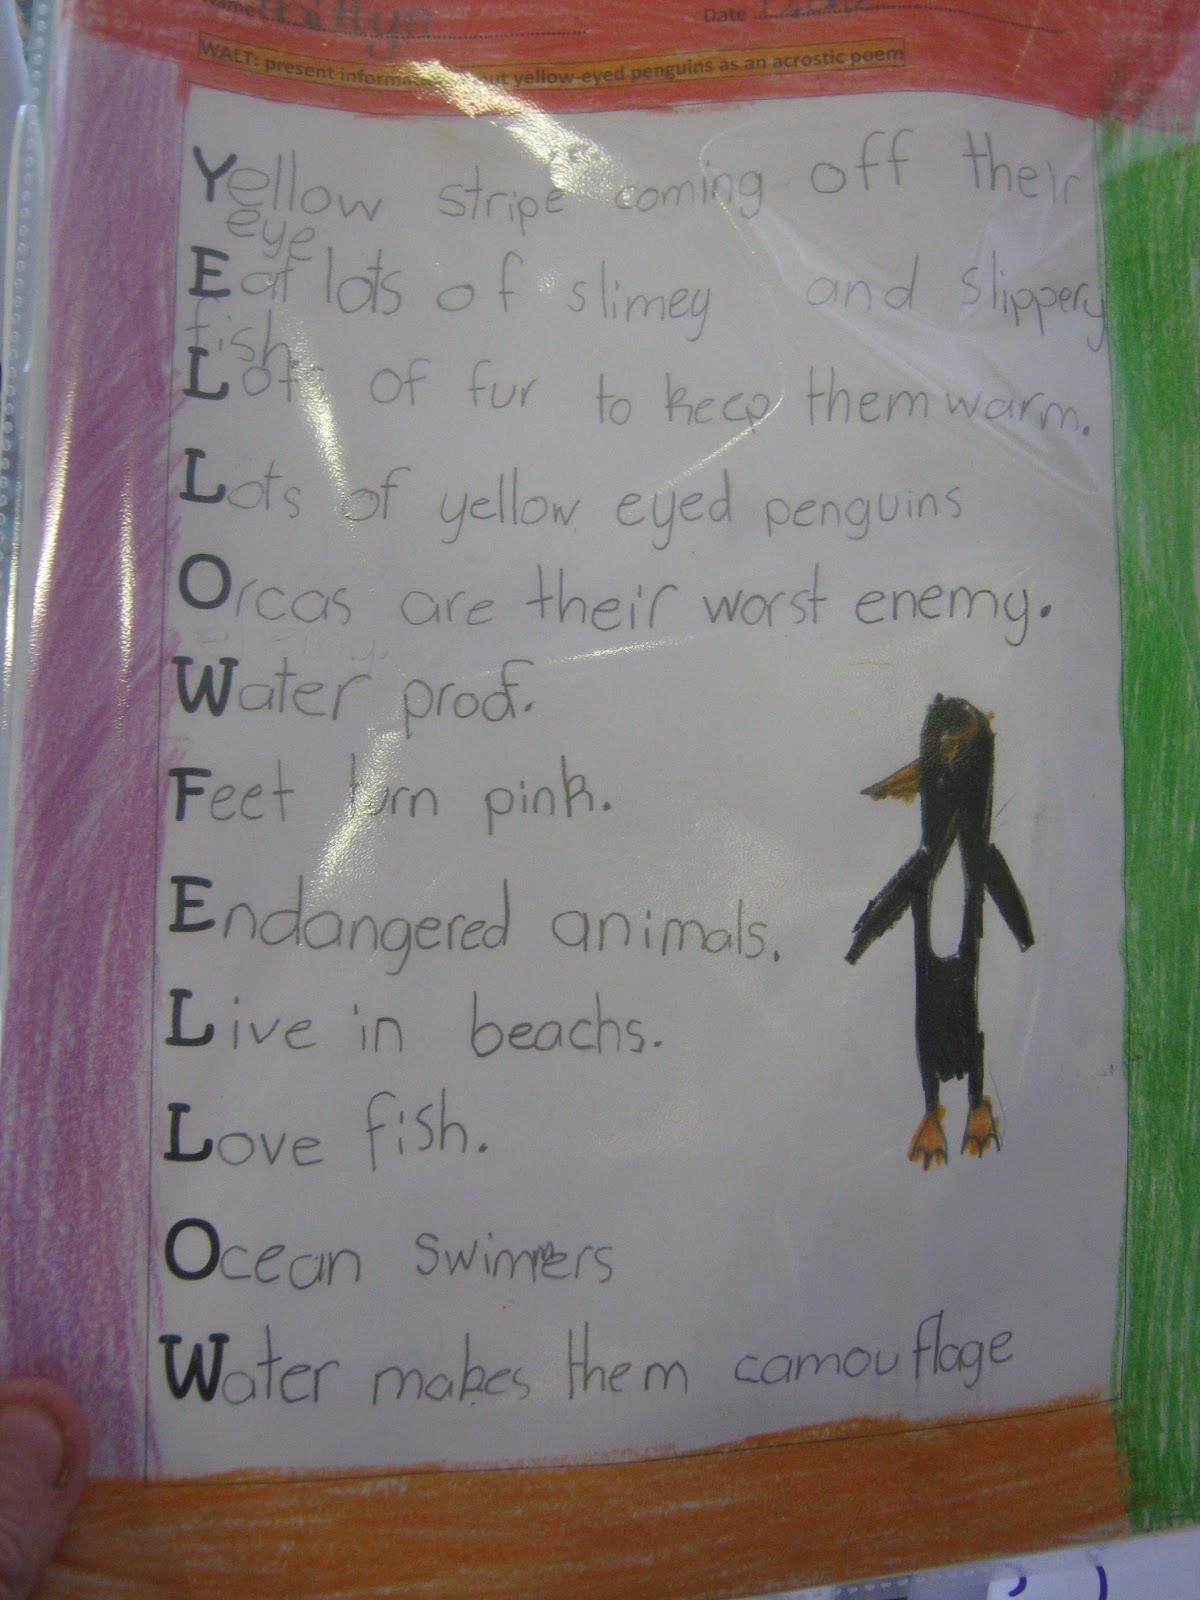 Name
Date
WALT: present information about yellow-eyed penguins as an acrostic poem
Yellow stripe coming off their
eye
Eat lots of slimey and slippery
fish
Lots of fur to keep them warm.
Lots of yellow eyed penguins
Orcas are their worst enemy.
Water proof.
Feet turn pink.
Endangered animals.
Live in beachs.
Love fish.
Ocean swimmers
Water makes them camouflage